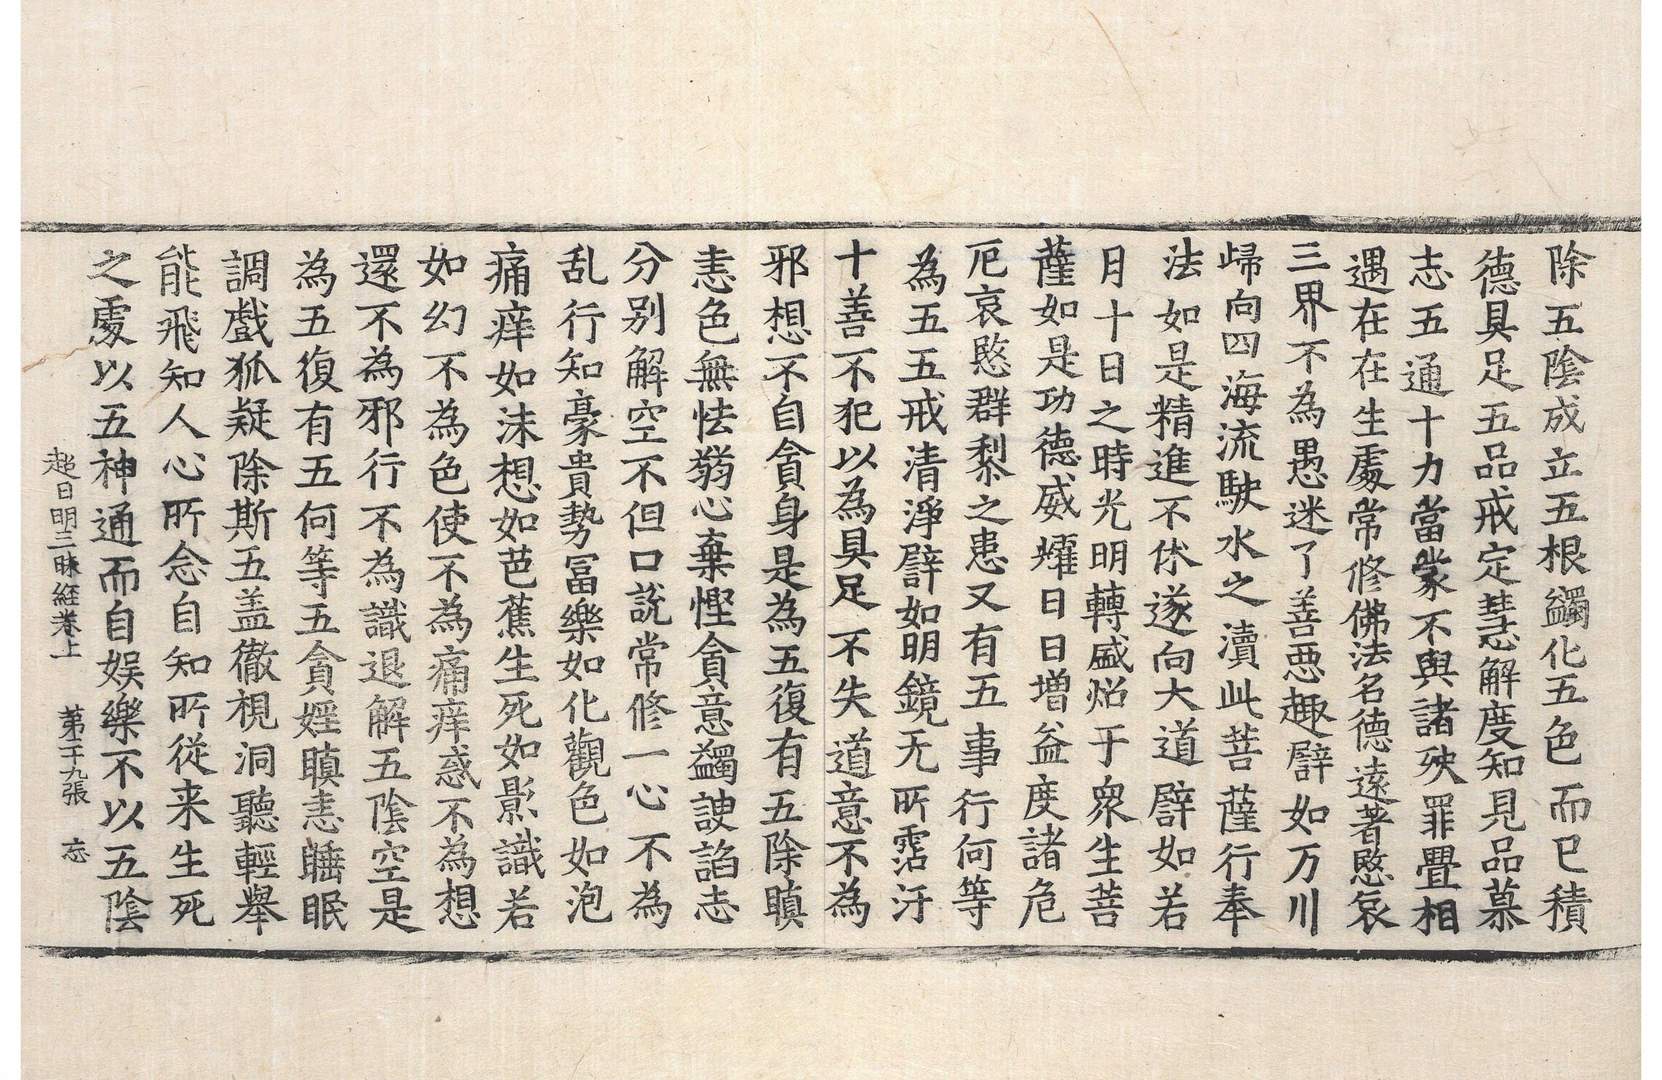 除五陰成立五根蠲化五色而已積
德具足五品戒定慧解度知見品慕
志五通十力當蒙不與諸殃罪疊相
遇在在生處常修佛法名德遠著愍哀
三界不為愚迷了善惡趣譬如万川
歸向四海流駛水之瀆此菩薩行奉
法如是精進不休遂向大道譬如若
月十日之時光明轉盛炤于衆生菩
薩如是功德威燿日日增益度諸危
厄哀愍群黎之恚又有五事行何等
為五五戒清淨譬如明鏡无所霑汙
十善不犯以為具足不失道意不為
邪想不自貪身是為五復有五除瞋
恚色無怯弱心棄慳貪意蠲諛諂志
分別解空不但口說常修一心不為
乱行知豪貴勢冨樂如化觀色如泡
痛痒如沫想如芭蕉生死如影識若
如幻不為色使不為痛痒惑不為想
還不為邪行不為識退解五陰空是
為五復有五何等五貪婬瞋恚睡眠
調戲狐疑除斯五盖徹視洞聽輕舉
能飛知人心所念自知所從来生死
之處以五神通而自娛樂不以五陰
超日明三昧経卷上 第二十九張 忘